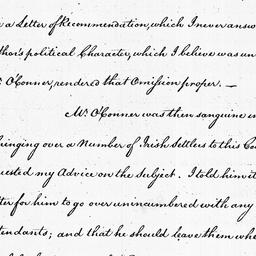 a Letter of Recommendation, which I never answ
thor's political Character, which I believe was un
O'Conner, rendered that Omission proper. —
Mr. O'Conner was then sanguine in
ringing over a Number of Irish Settlers to this Co
uested my Advice on the subject. I told him it
ter for him to go over unincumbered with any
tendants; and that he should leave them whe